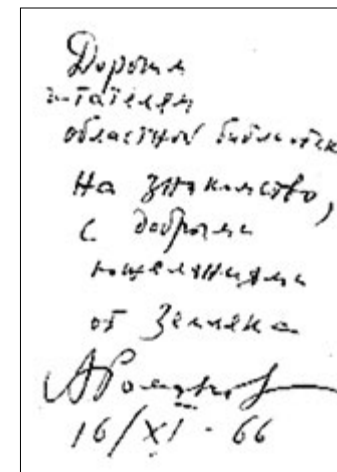 Дорогим
читателям
областной библиотеки
На знакомство,
с добрыми
пожеланиями
от земляка
16/XI - 66